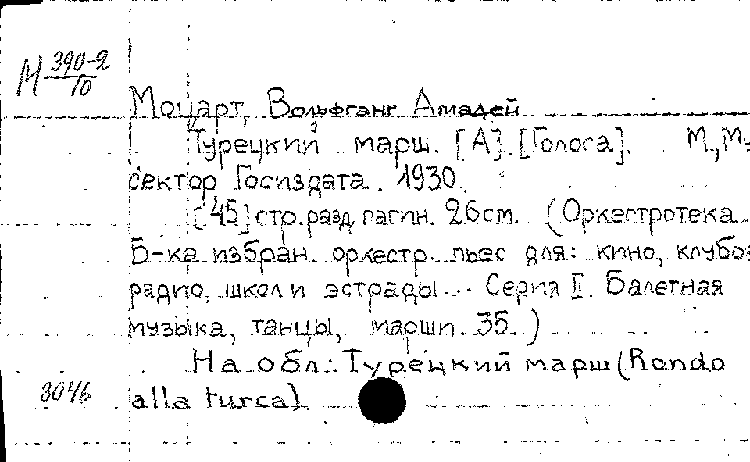 М 390-2/10
Моцарт, Вольфганг Амадей
Турецкий марш. [А]. [Голоса]. М., Муз
сектор Госиздата. 1930.
[45] стр. разд. пагин. 26 см. (Оркестротека
Б-ка избран. оркестр. пьес для: кино, клубов
радио, школ и эстрады. Серия I. Балетная
музыка, танцы, марши. 35.)
На обл.: Турецкий марш (Rondo
8046 alla turca).